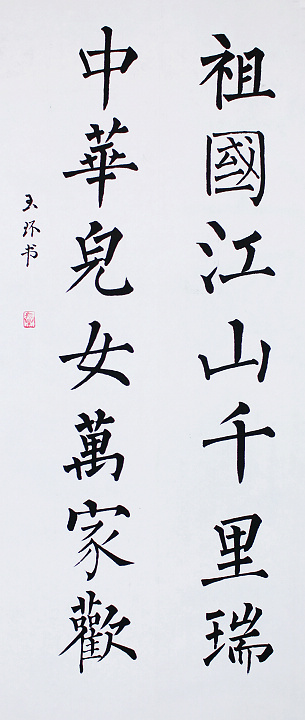 祖國江山千里瑞
中華兒女萬家歡
玉环书